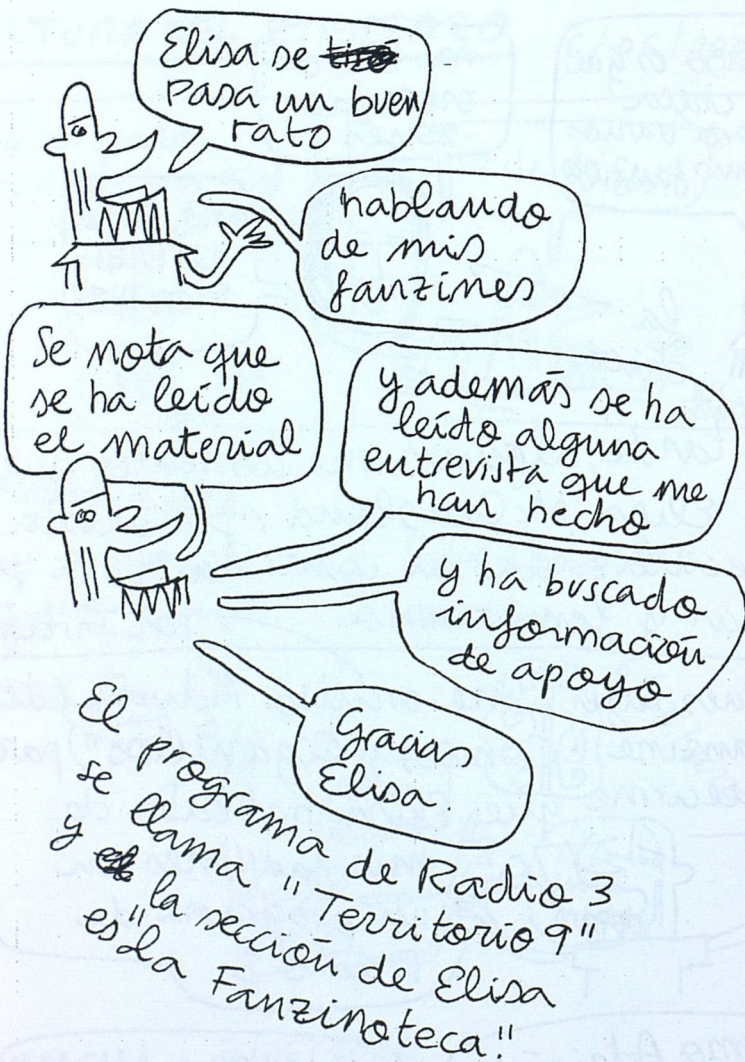 Elisa se
pasa un buen
rato
hablando
de mis
fanzines
Se nota que
se ha leído
el material
y además se ha
leído alguna
entrevista que me
han hecho
y ha buscado
información
de apoyo
Gracias
Elisa.
El programa de Radio 3
se llama "Territorio 9"
y la sección de Elisa
es "La Fanzinoteca"